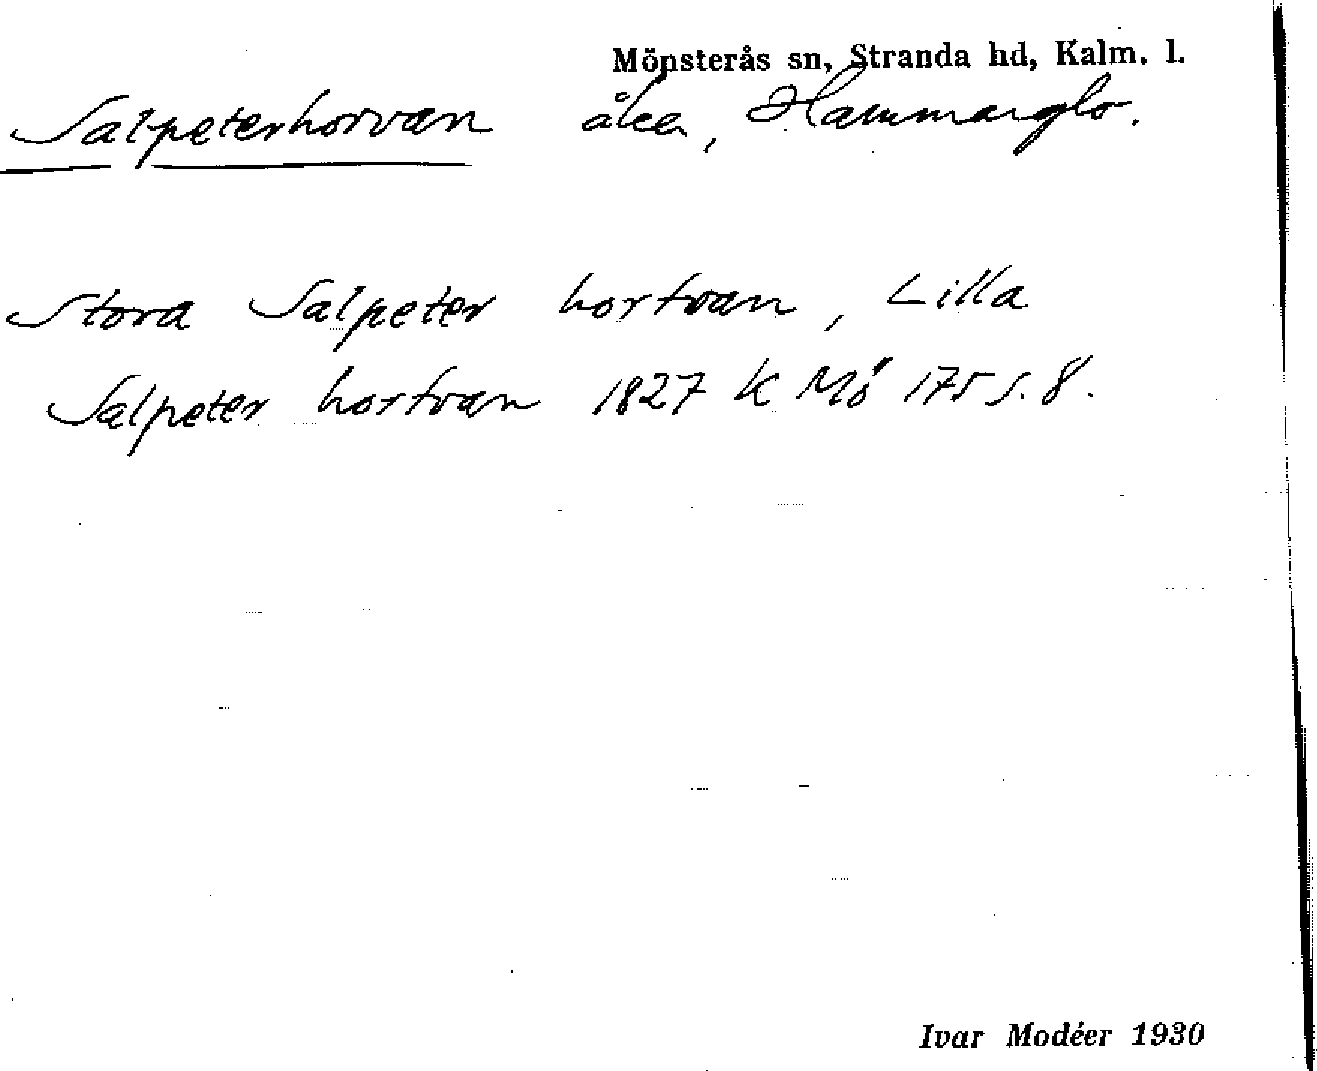 Mönsterås sn, Stranda hd, Kalm. l.
Salpeterhorvan åker, Hammarglo.
Stora Salpeter hortvan, Lilla
Salpeter hortvan 1827 K Mö 175 s. 8.
Ivar Modéer 1930